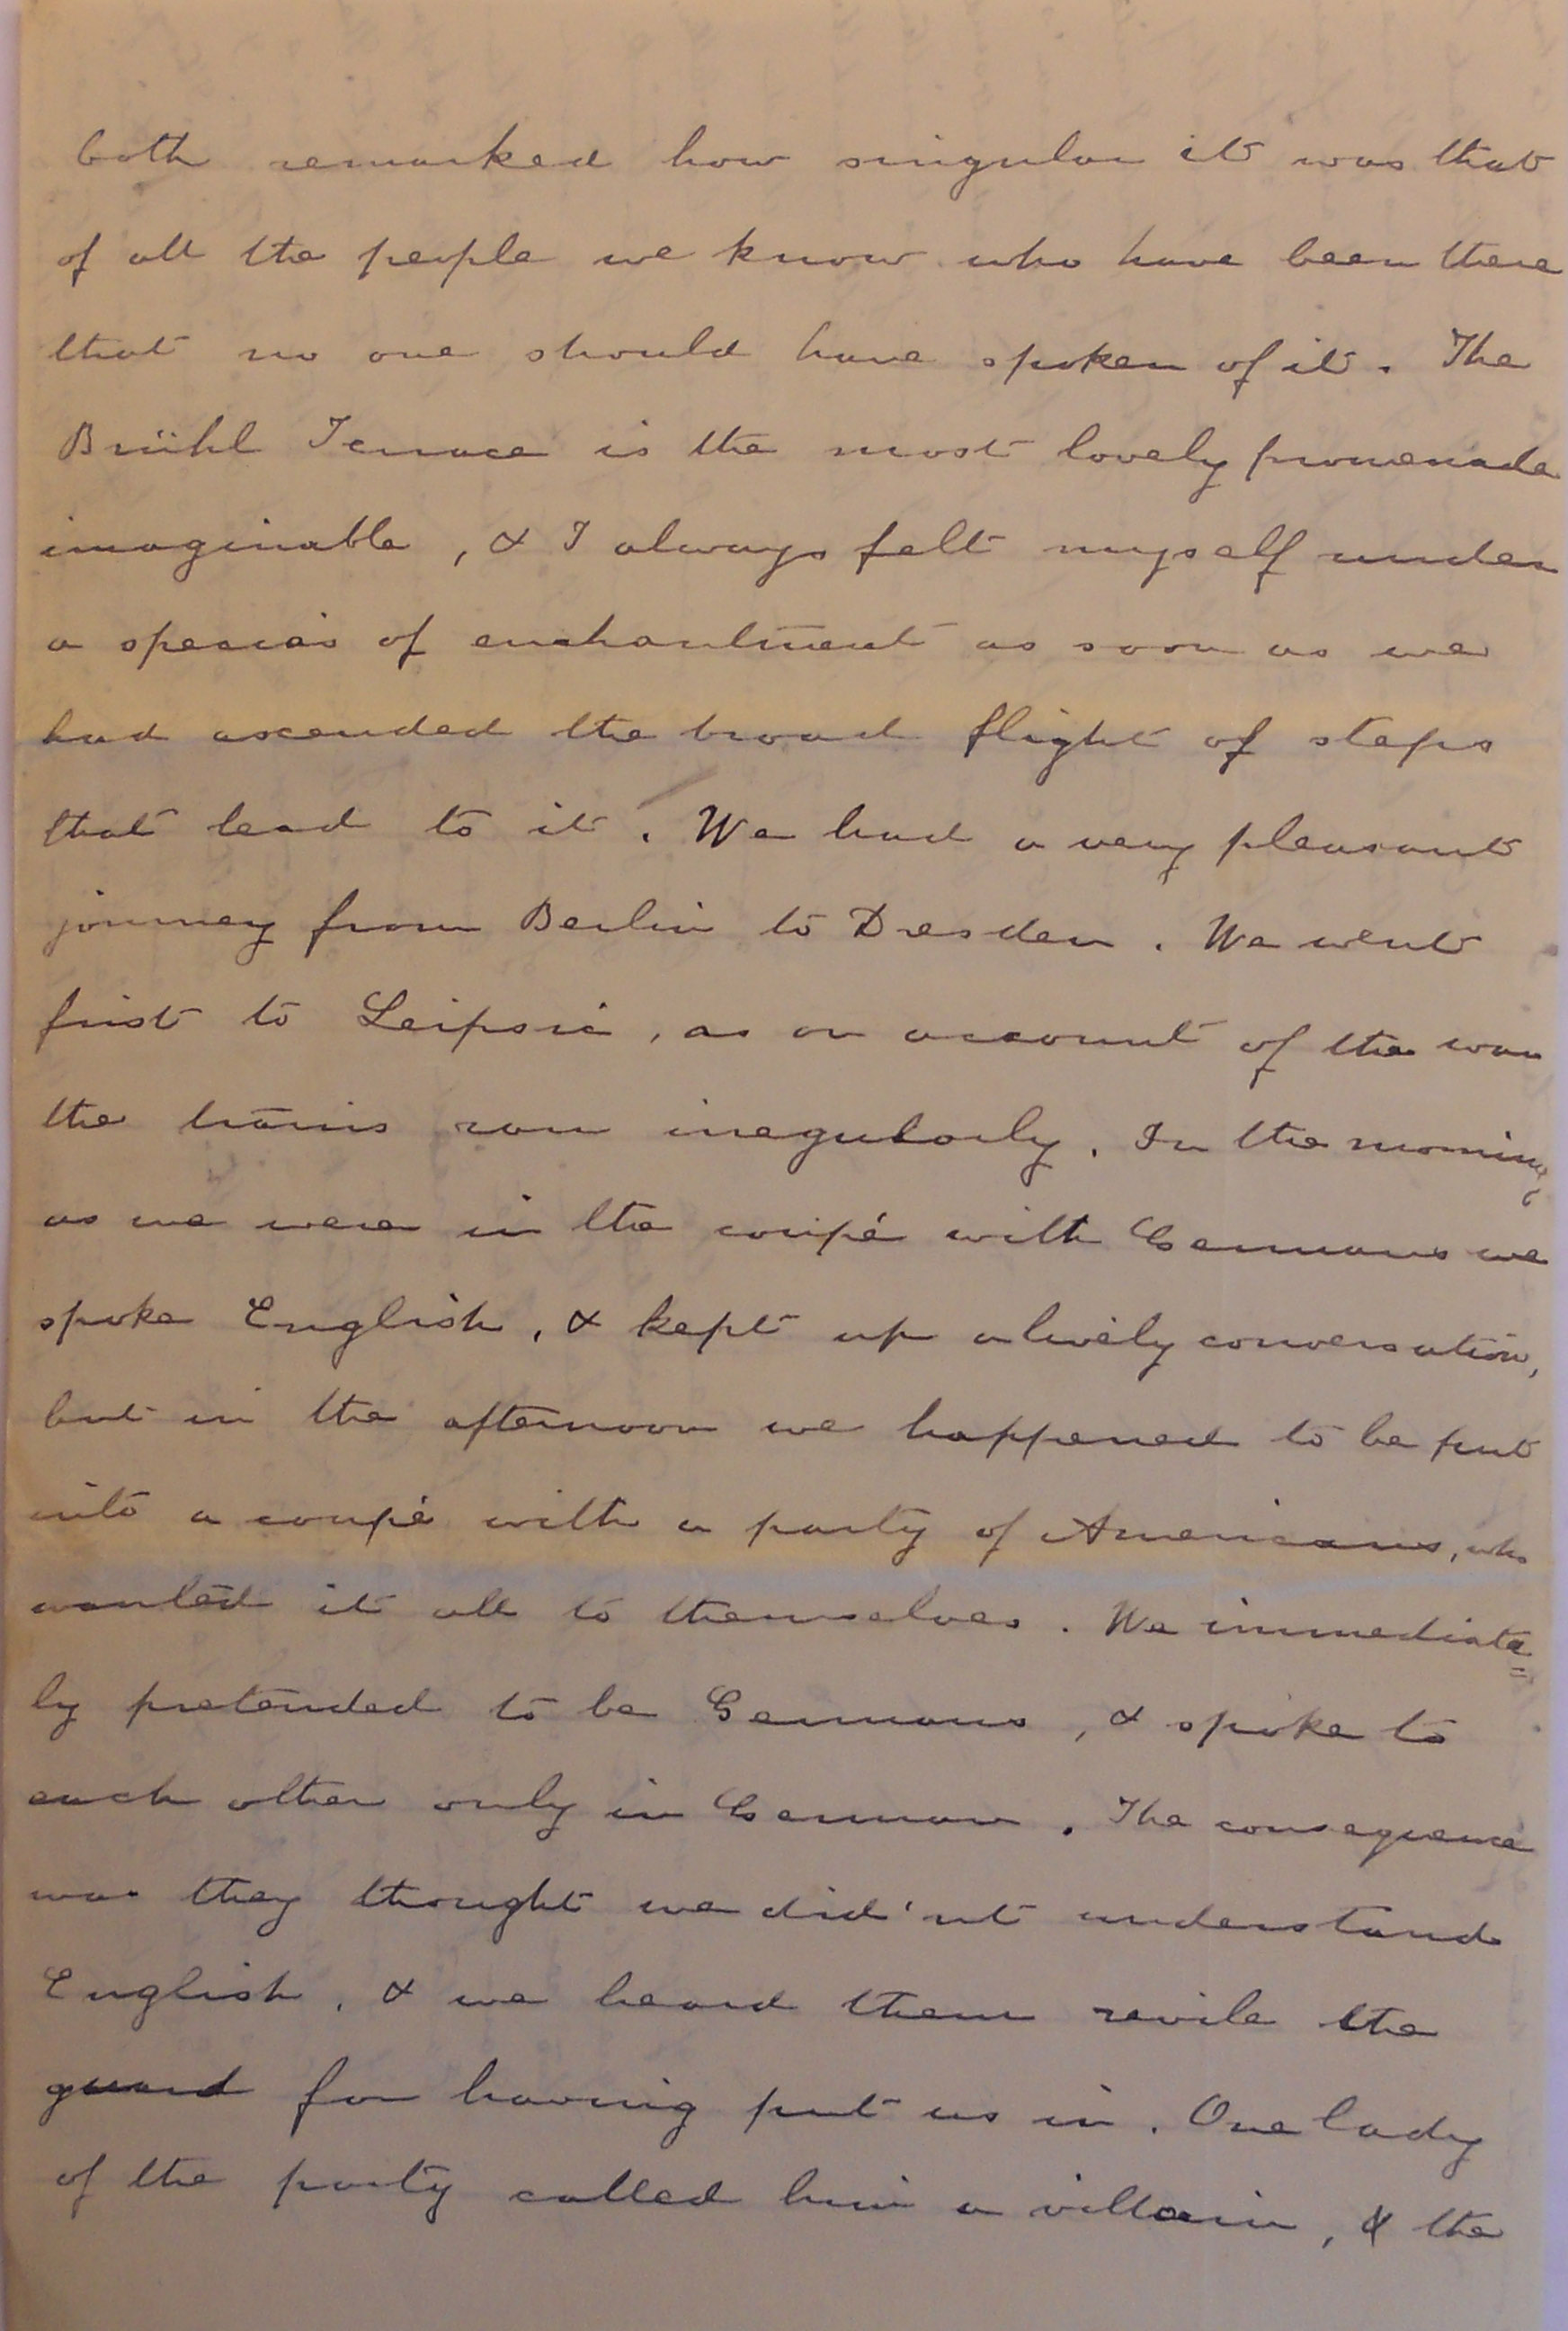 both remarked how singular it was that
of all the people we know who have been there
that no one should have spoken of it. The
Brühl Terrace is the most lovely promenade
imaginable, & I always felt myself under
a species of enchantment as soon as we
had ascended the broad flight of steps
that lead to it. We had a very pleasant
journey from Berlin to Dresden. We went
first to Leipsic, as on account of the war
the trains ran irregularly. In the morning
as we were in the coupé with Germans we
spoke English, & kept up a lively conversation,
but in the afternoon we happened to be put
into a coupé with a party of Americans, who
wanted it all to themselves. We immediate=
ly pretended to be Germans, & spoke to
each other only in German. The consequence
was they thought we did'nt understand
English, & we heard them revile the
guard for having put us in. One lady
of the party called him a villain, & the